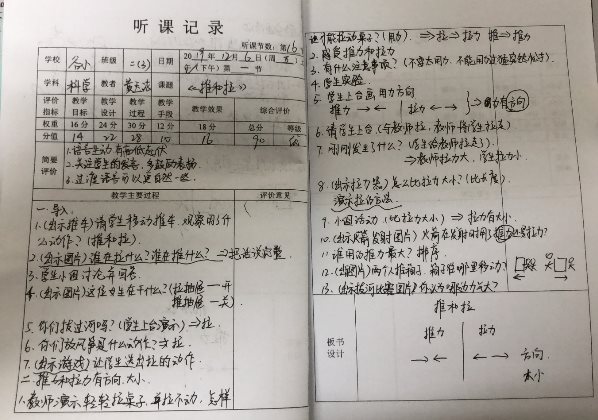 听课记录
听课节数：第16
学校 班级 二(3) 日期 2019年12月6日(周五)
(下午)第一节
学科 科学 教者 课题 《推和拉》
评价指标 教学目标 教学设计 教学过程 教学手段 教学效果 综合评价
权重 16分 24分 30分 12分 18分 总分 等级
分值 14 22 28 10 16 90
简要评价
1.语言生动有高低起伏
2.关注学生的回答，多鼓励表扬
3.过渡语言可以更自然一些
教学主要过程 评价意见
一.导入
1.(出示推车)请学生移动推车，观察用了什
么动作？(推和拉)
2.(出示图片)谁在拉什么？谁在推什么？⇒把话说完整
3.学生小组讨论并回答
4.(出示图片)这位男生在干什么？(拉抽屉—开
推抽屉—关)
5.你们拔过河吗？(学生上台演示)⇒拉
6.你们放风筝是什么动作？⇒拉
7.(出示游戏)让学生选出拉的动作
二.推力和拉力有方向、大小
1.教师演示轻轻拉桌子，并拉不动，怎样
才能拉动桌子？(用力) ⇒拉⇒拉力 推⇒推力
2.感受推力和拉力
3.有什么注意事项？
4.学生实验
5.学生上台画用力方向
推力→← 拉力←→ ⇒用力有方向
6.请学生上台(与教师拉，教师将学生拉走)
7.刚刚发生了什么？(学生给老师拉走了)
⇒教师拉力大，学生拉力小
8.(出示拉力器)怎么比拉力大小？(比长度)
演示拉的方法
9.小组活动(比拉力大小)⇒拉力有大小
10.(出示火箭发射图片)火箭在发射时用了推力还是拉力？
11.谁用的推力最大？排序
12.(出示图片)两个人推箱子，箱子往哪里移动？
13.(出示拔河比赛图片)你认为哪边力气大？
板书设计
推和拉
推力 拉力
→← ←→ 方向
大小